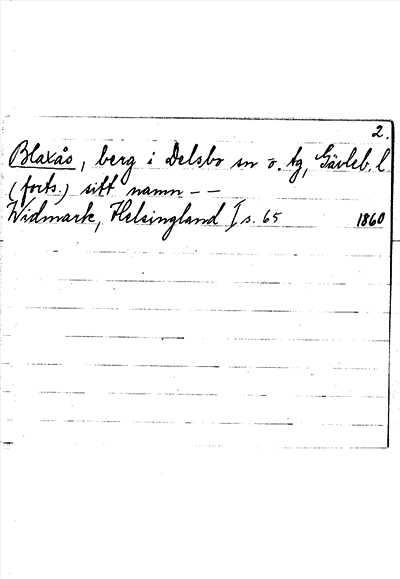 2.
Blaxås, berg i Delsbo sn o. tg, Gävleb. l
(forts.) sitt namn – –
Widmark, Helsingland I s. 65 1860